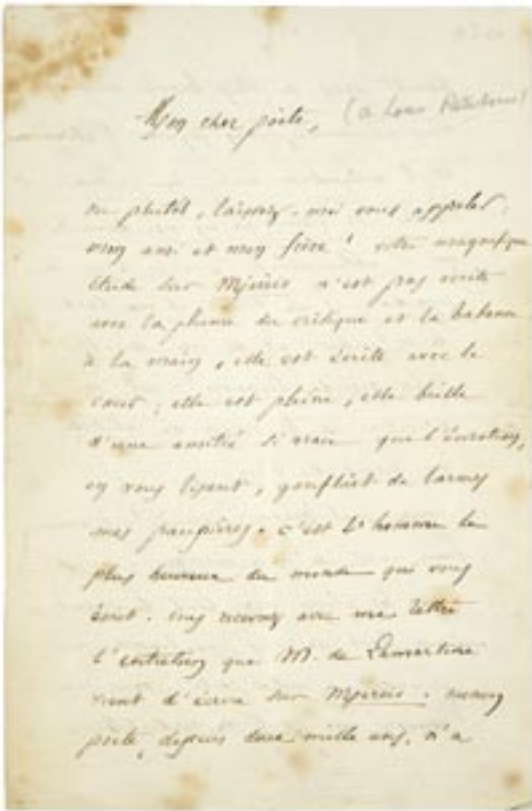 Mon cher poète, (à Louis Ratisbonne)
ou plutôt, laissez-moi vous appeler
mon ami et mon frère ! votre magnifique
étude sur Mirèio n'est pas écrite
avec la plume du critique et la balance
à la main, elle est écrite avec le
cœur ; elle est pleine, elle brille
d'une amitié si vraie que l'émotion,
en vous lisant, gonflait de larmes
mes paupières. c'est l'homme le
plus heureux du monde qui vous
écrit. vous recevrez avec ma lettre
l'entretien que M. de Lamartine
vient d'écrire sur Mirèio. aucun
poète, depuis deux mille ans, n'a